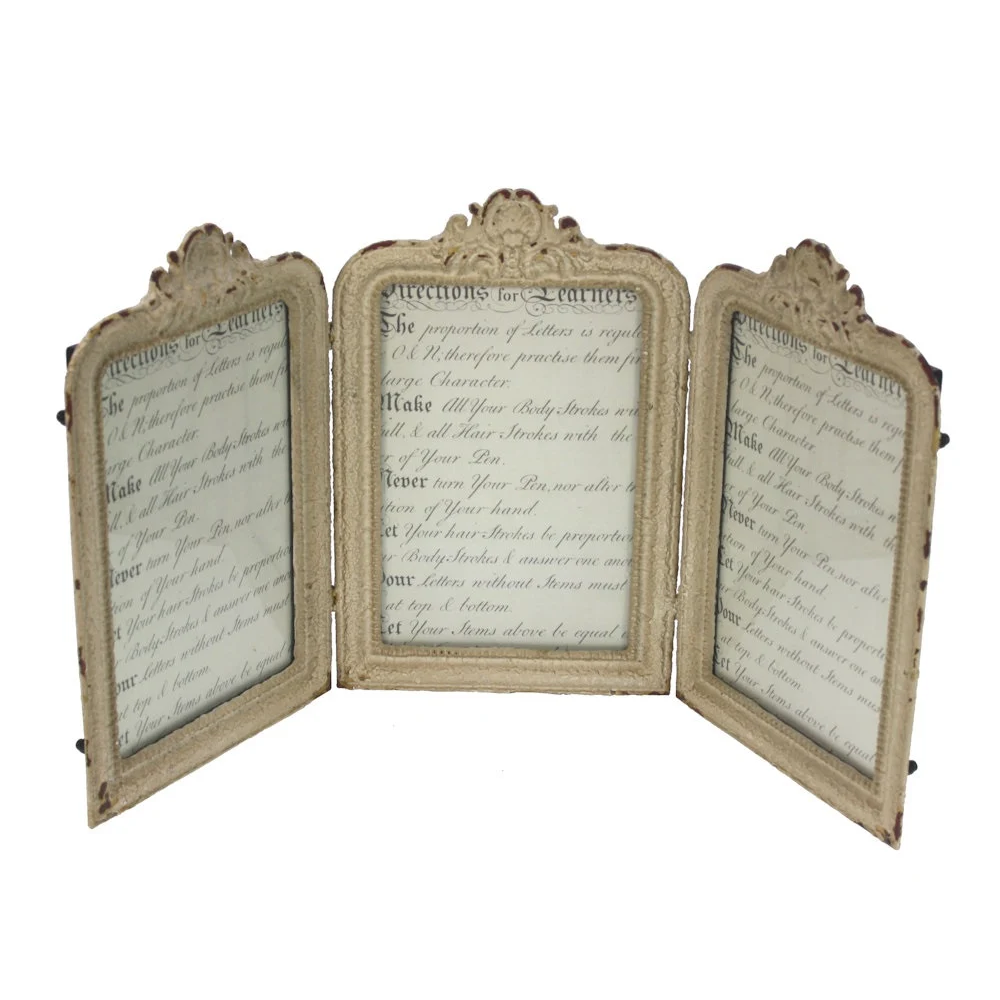 irections for Learners
The proportion of Letters is regul
O & N, therefore practise them f
arge Character.
Make All Your Body Strokes wi
ll, & all Hair Strokes with the
of Your Pen.
Never turn Your Pen, nor alter
tion of Your hand.
et Your hair Strokes be proportion
Body Strokes & answer one an
our Letters without Stems must
at top & bottom.
et Your Stems above be equal
Directions for Learners
The proportion of Letters is regul
O & N, therefore practise them fr
large Character.
Make All Your Body Strokes wi
ull, & all Hair Strokes with the
r of Your Pen.
Never turn Your Pen, nor alter th
tion of Your hand.
Let Your hair Strokes be proportion
ur Body Strokes & answer one ano
Your Letters without Stems must
at top & bottom.
Let Your Stems above be equal
Directions for Learner
The proportion of Letters is reg
O & N, therefore practise them f
large Character.
Make All Your Body Strokes w
ull, & all Hair Strokes with th
r of Your Pen.
Never turn Your Pen, nor alter
tion of Your hand.
Let Your hair Strokes be proporti
ur Body Strokes & answer one an
Your Letters without Stems mus
at top & bottom.
Let Your Stems above be equal